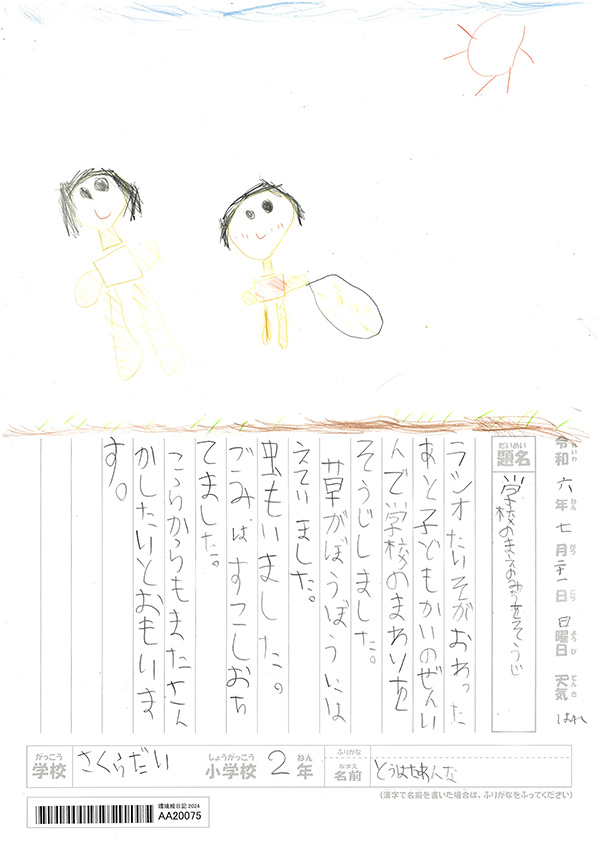 令和六年七月二十一日日曜日 天気 はれ
れいわ ねん がつ にち ようび てんき
だいめい
題名
学校のまえのみちをそうじ
ラジオたいそがおわった
あと子どもかいのぜんい
んで学校のまわりを
そうじしました。
草がぼうぼうには
えていました。
虫もいました。
ごみはすこしおち
てました。
これからもまたさん
かしたいとおもいま
す。
がっこう
学校
さくらだい
しょうがっこう
小学校
2
ねん
年
ふりがな
なまえ
名前
(漢字で名前を書いた場合は、ふりがなをふってください)
環境絵日記 2024
AA20075